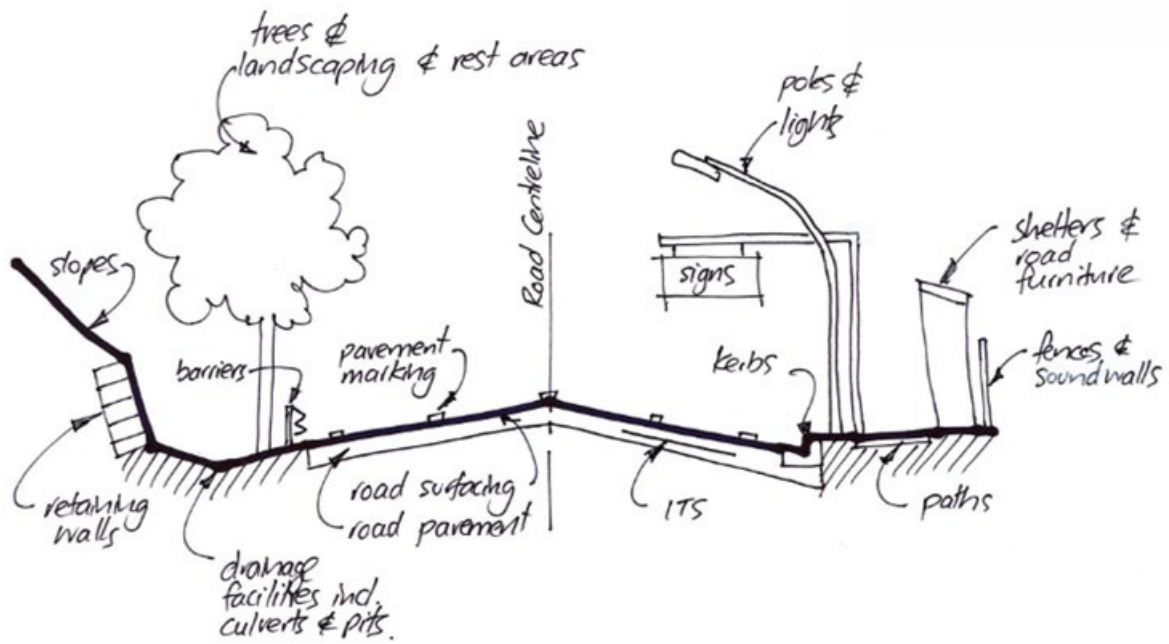 trees &
landscaping & rest areas
poles &
lights
Road Centreline
shelters &
road
furniture
slopes
signs
barriers
pavement
marking
kerbs
fences &
soundwalls
retaining
walls
road surfacing
road pavement
ITS
paths
drainage
facilities incl.
culverts & pits.